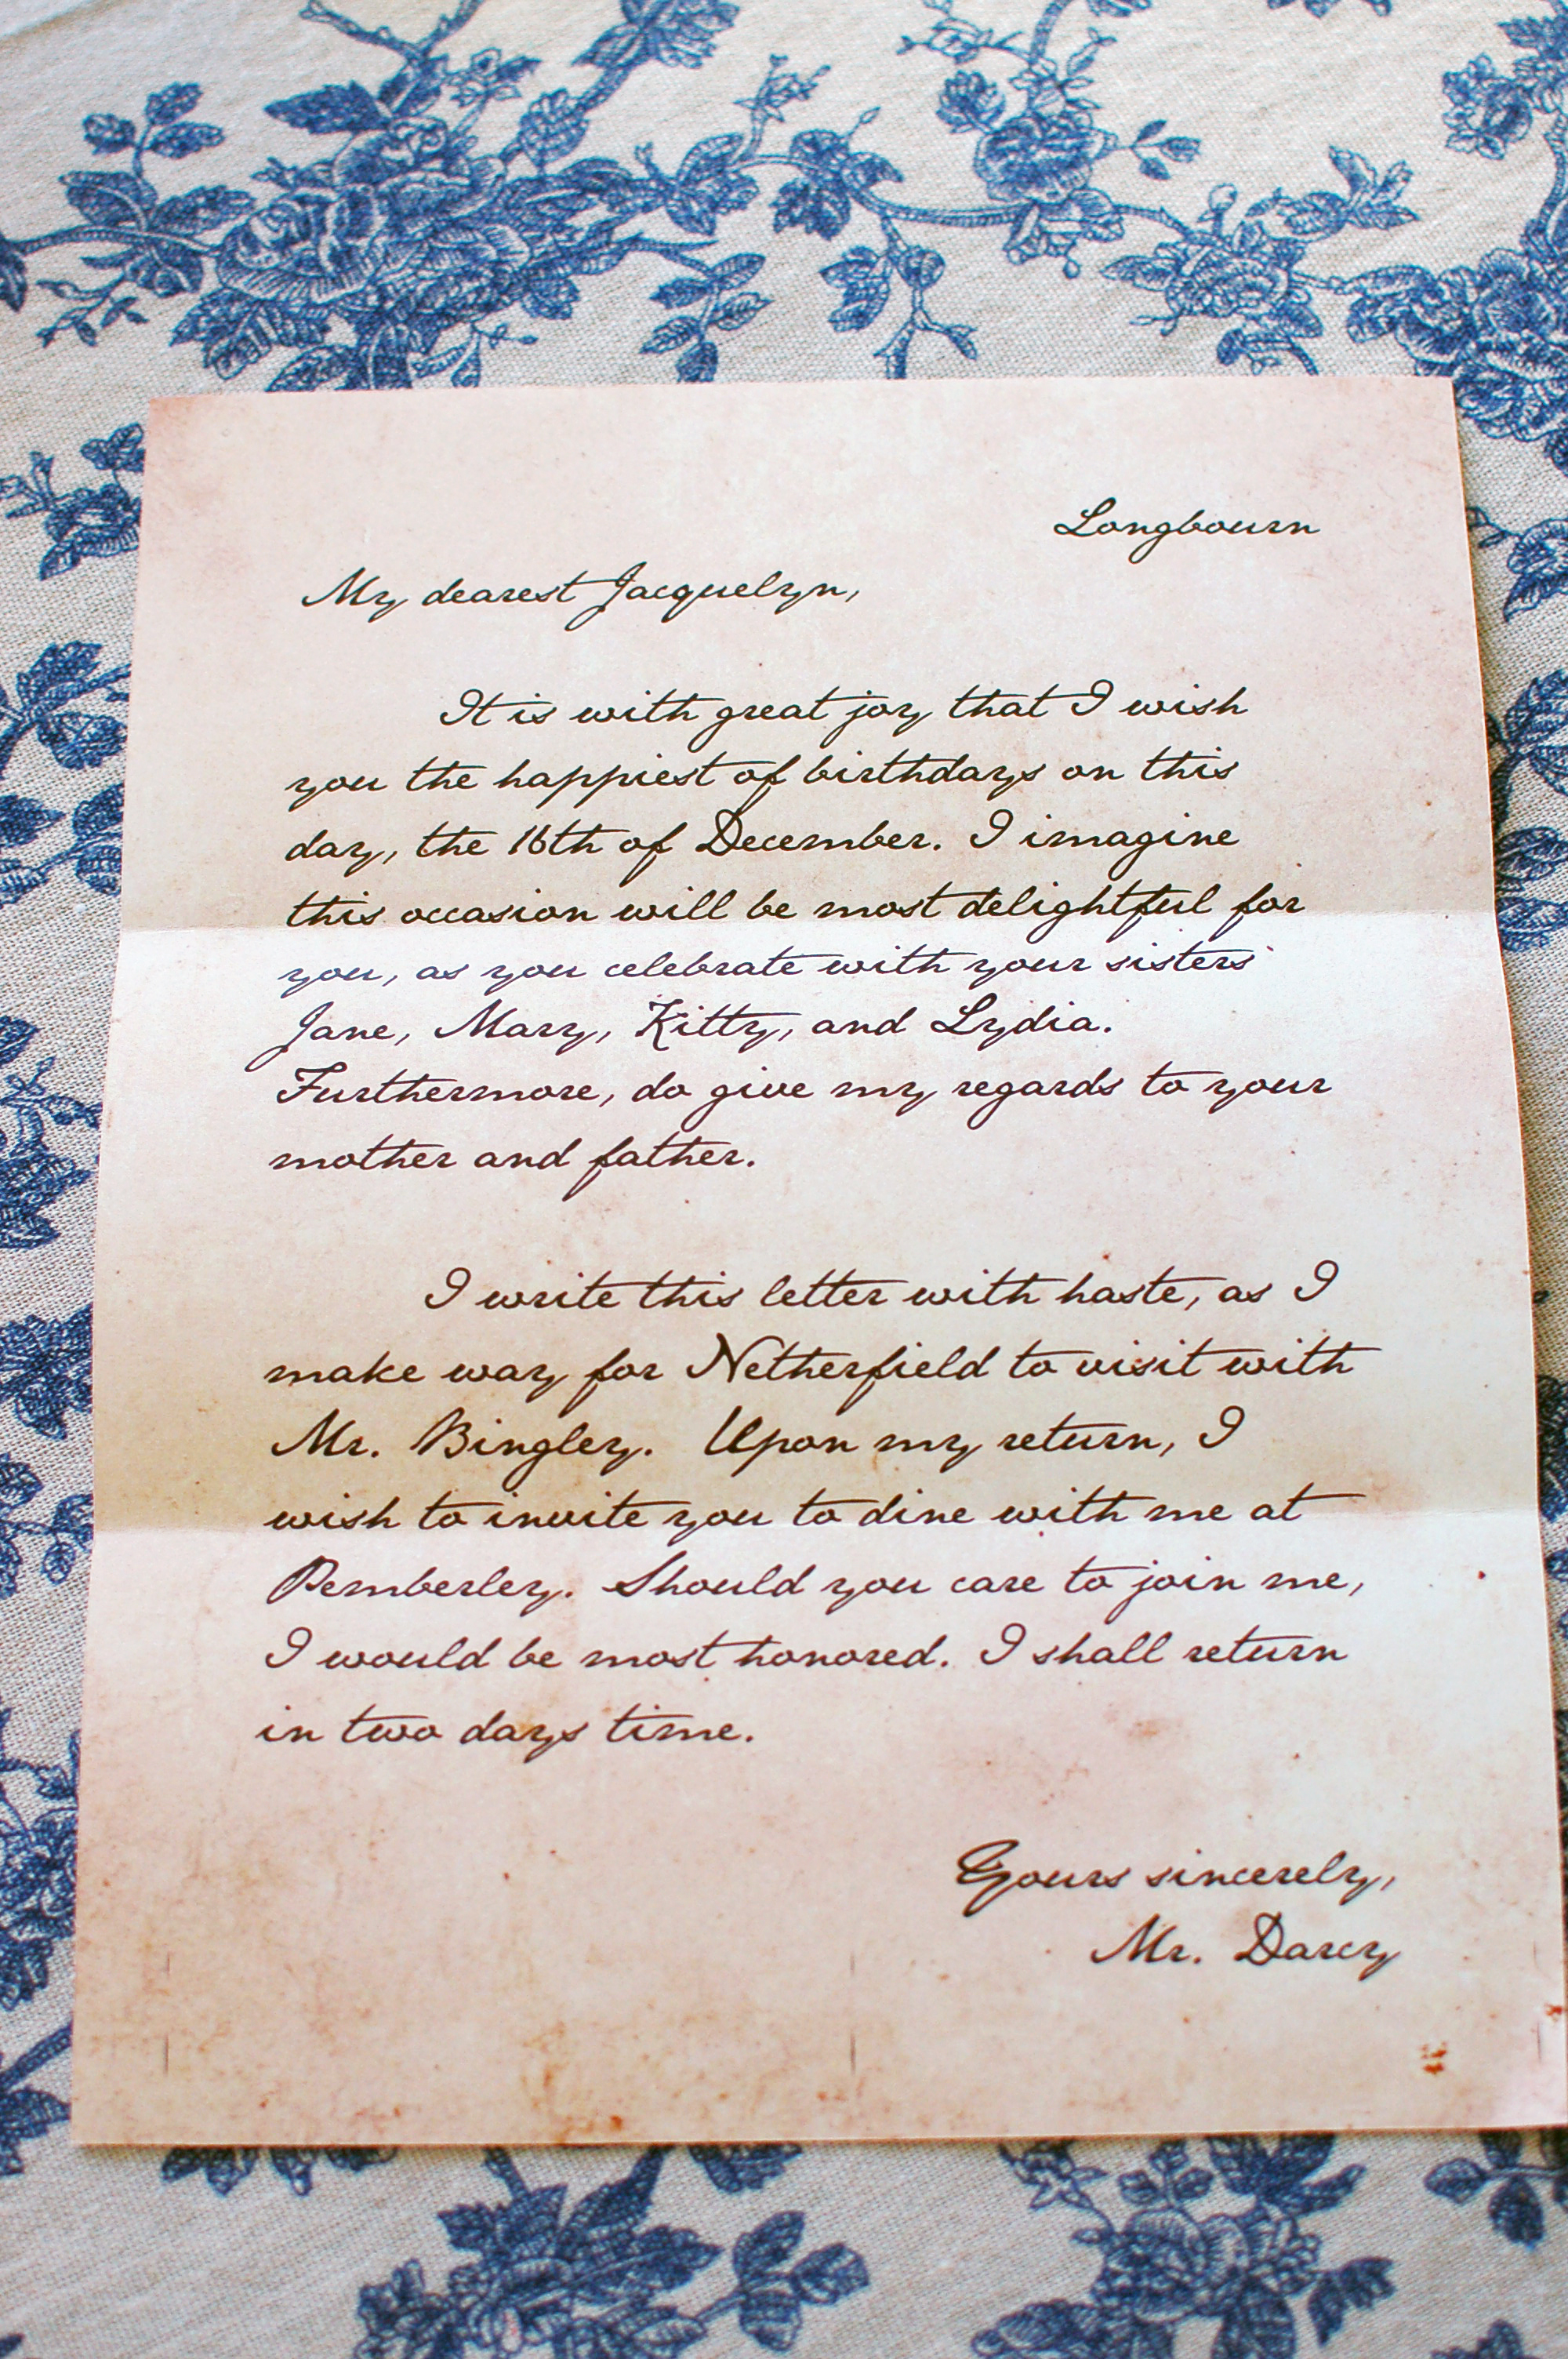 Longbourn
My dearest Jacquelyn,
It is with great joy that I wish
you the happiest of birthdays on this
day, the 16th of December. I imagine
this occasion will be most delightful for
you, as you celebrate with your sisters
Jane, Mary, Kitty, and Lydia.
Furthermore, do give my regards to your
mother and father.
I write this letter with haste, as I
make way for Netherfield to visit with
Mr. Bingley. Upon my return, I
wish to invite you to dine with me at
Pemberley. Should you care to join me,
I would be most honored. I shall return
in two days time.
Yours sincerely,
Mr. Darcy